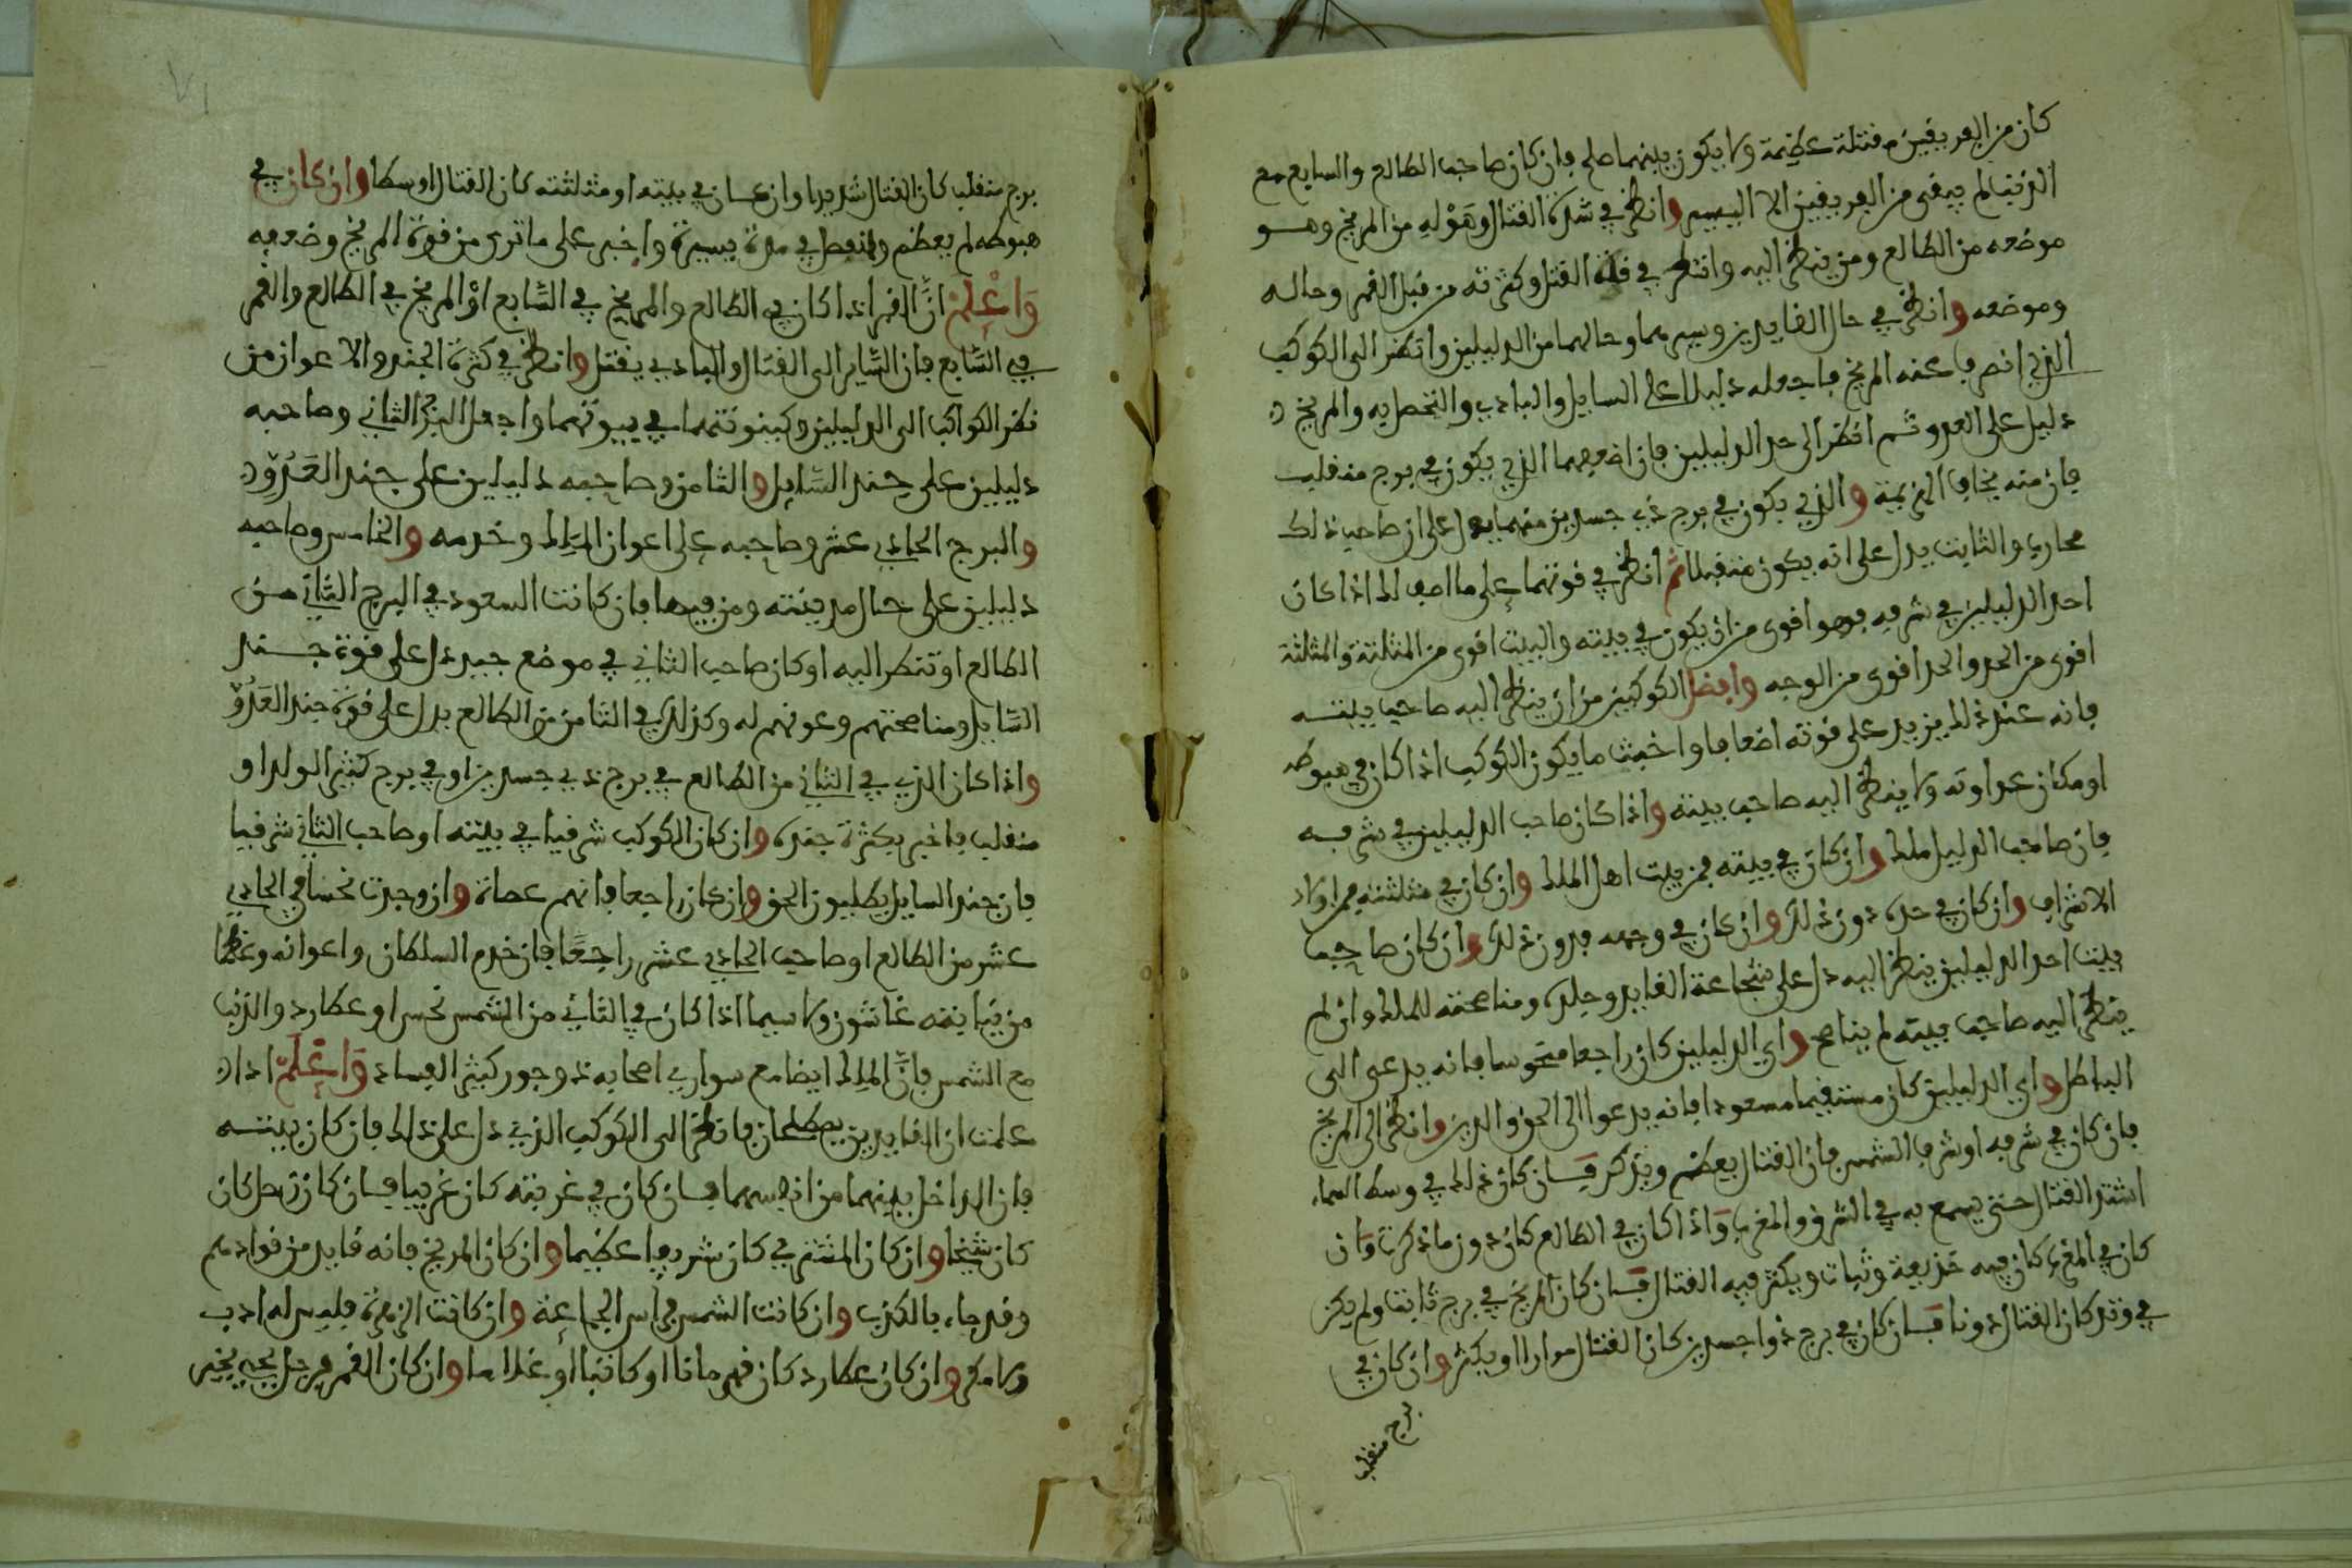 كان من الفريقين مقتلة عظيمة ولا يكون بينهما صلح فان كان صاحب الطالع والسابع مع
الذنب لم يبقى من الفريقين الا اليسير وانظر في شدة القتال وهَوْلِهِ من المريخ وهو
موضعه من الطالع ومن ينظر اليه وانظر في قلة القتل وكثرته من قبل القمر وحاله
وموضعه وانظر في حال القايدين وسيرهما وحالهما من الدليلين وانظر الى الكوكب
الذي انصرف عنه المريخ فاجعله دليلا على السايل والبادي والمتصل به والمريخ
دليل على العدو ثم انظر الى حد الدليلين فان اضعفهما الذي يكون في برج منقلب
فان منه يخاف الهزيمة والذي يكون في برج ذي جسدين منهما يدل على ان صاحب ذلك
محارب والثابت يدل على انه يكون متقبلا ثم انظر في قوتهما على ما اصف لك اذا كان
احد الدليلين في شرفه فهو اقوى من ان يكون في بيته والبيت اقوى من المثلثة والمثلثة
اقوى من الحد والحد اقوى من الوجه وافضل الكوكبين من ان ينظر اليه صاحب بيته
فانه عند ذلك يزيد على قوته اضعافا واخبث ما يكون الكوكب اذا كان في هبوطه
او مكان عداوته ولا ينظر اليه صاحب بيته واذا كان صاحب الدليلين في شرفه
فان صاحب الدليل ملك وان كان في بيته فمن بيت اهل الملك وان كان في مثلثته فمن اولاد
الاشراف وان كان في حده دون ذلك وان كان في وجهه فدون ذلك وان كان صاحب
بيت احد الدليلين ينظر اليه دل على شجاعة القايد وجلده ومناصحته للملك وان لم
ينظر اليه صاحب بيته لم يناصح واي الدليلين كان راجعا منحوسا فانه يدعى الى
الباطل واي الدليلين كان مستقيما مسعودا فانه يدعوا الى الحق والدين وانظر الى المريخ
فان كان في شرفه او شرف الشمس فان القتال يعظم ويذكر فان كان ذلك في وسط السماء
اشتد القتال حتى يسمع به في الشرق والمغرب واذا كان في الطالع كان دون ما ذكرت وان
كان في المغرب كان فيه خديعة وثبات ويكثر فيه القتال فان كان المريخ في برج ثابت ولم يكن
في وتد كان القتال دونا فان كان في برج ذوا جسدين كان القتال مرارا او يكثر وان كان في
برج منقلب
برج منقلب كان القتال شديدا وان كان في بيته او مثلثته كان القتال اوسطا وان كان في
هبوطه لم يعظم وانفصل في مدة يسيرة واخبر على ما ترى من قوة المريخ وضعفه
وَاعْلَمْ انَّ القمر اذا كان في الطالع والمريخ في السَّابع اوْ المريخ في الطالع والقمر
في السَّابع فان السَّاير الى القتال والبادي يقتل وانظر في كثرة الجند والاعوان من
نظر الكواكب الى الدليلين وكينونتهما في بيوتهما واجعل البرج الثاني وصاحبه
دليلين على جند السَّايل والثامن وصاحبه دليلين على جند العَدُوِّ
والبرج الحادي عشر وصاحبه على اعوان المَلِك وخدمه والخامس وصاحبه
دليلين على حال مدينته ومن فيها فان كانت السعود في البرج الثاني من
الطالع او تنظر اليه او كان صاحب الثاني في موضع جيد دل على قوة جند
السَّايل ومناصحتهم وعونهم له وكذلك في الثامن من الطالع يدل على قوة جند العَدُوّ
واذا كان الذي في الثاني من الطالع في برج ذي جسدين او في برج كثير الولد او
منقلب فاخبر بكثرة جنده وان كان الكوكب شرقيا في بيته او صاحب الثاني شرقيا
فان جند السايل يطلبون الحق وان كان راجعا فانهم عصاة وان وجدت نحسا في الحادي
عشر من الطالع او صاحب الحادي عشر راجعًا فان خدم السلطان واعوانه
غاشون ولا سيما اذا كان في الثاني من الشمس نحس او عطارد والذنب
مع الشمس فانَّ الملك ايضا مع سواري اصحابه ذو جور كثير الفساد وَاعْلَمْ اذا
علمت ان القايدين يصطلحان فانظر الى الكوكب الذي دل على ذلك فان كان بيته
فان الداخل بينهما من انفسهما فان كان في غربته كان غريبا فان كان زحل كان
كان شيخا وان كان المشتري كان شريفا عظيما وان كان المريخ فانه قايد من قوادهم
وقد جاء بالكذب وان كانت الشمس فمن اسر الجماعة وان كانت الزهرة فليس له ادب
ولا مكر وان كان عطارد كان قهرمانا او كاتبا او غلاما وان كان القمر فرجل يحب يخبر